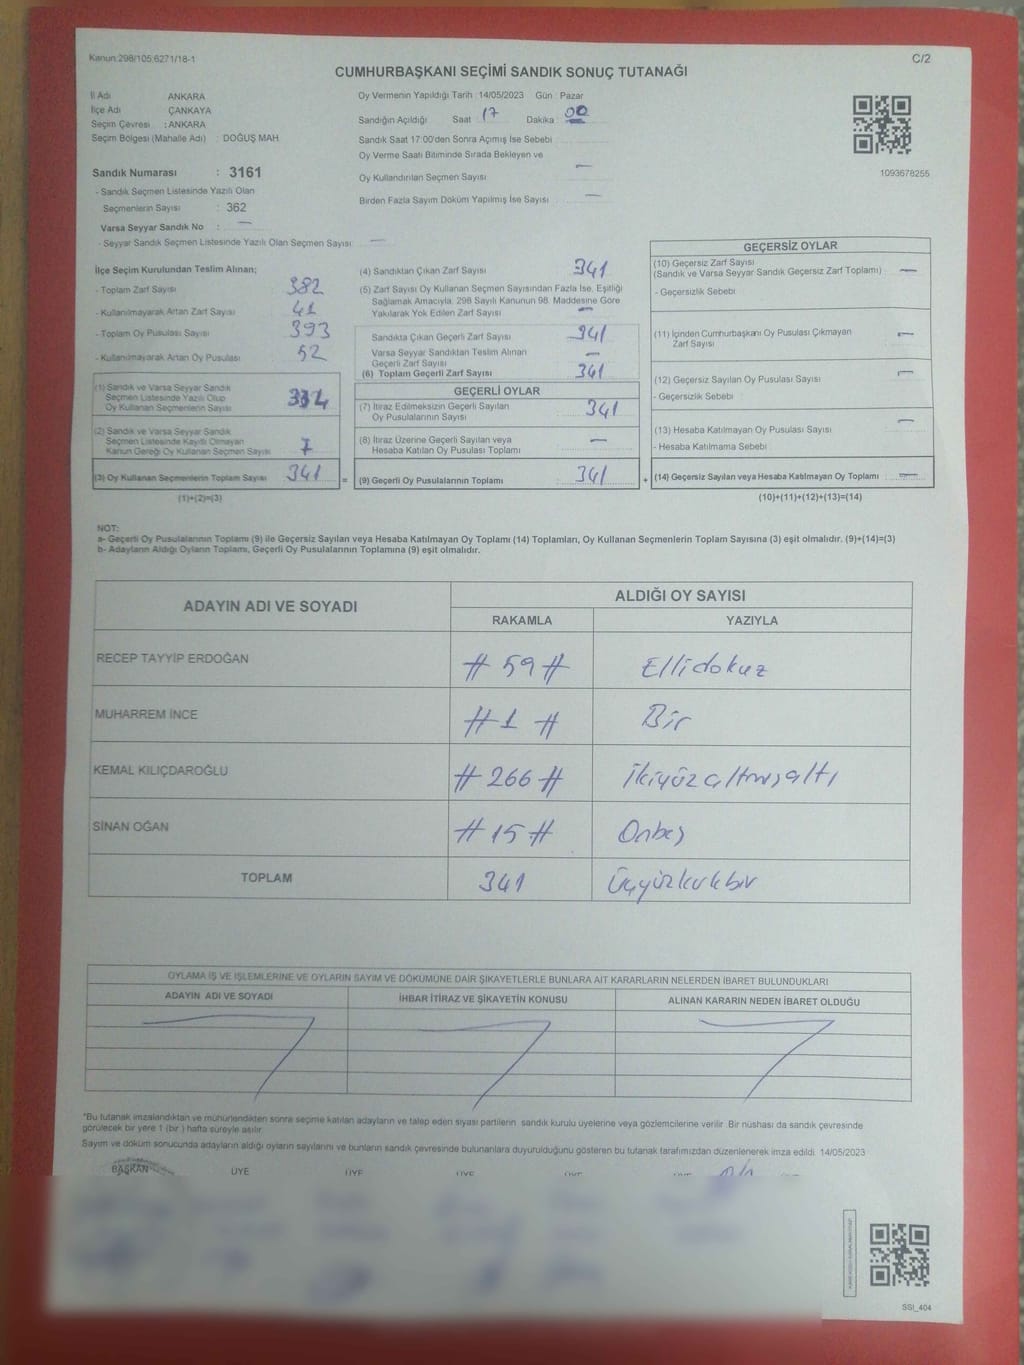 Kanun:298/105;6271/18-1
C/2
CUMHURBAŞKANI SEÇİMİ SANDIK SONUÇ TUTANAĞI
İl Adı ANKARA
İlçe Adı ÇANKAYA
Seçim Çevresi : ANKARA
Seçim Bölgesi (Mahalle Adı) : DOĞUŞ MAH
Sandık Numarası : 3161
- Sandık Seçmen Listesinde Yazılı Olan
Seçmenlerin Sayısı : 362
Varsa Seyyar Sandık No : —
- Seyyar Sandık Seçmen Listesinde Yazılı Olan Seçmen Sayısı: —
Oy Vermenin Yapıldığı Tarih : 14/05/2023 Gün : Pazar
Sandığın Açıldığı Saat 17 Dakika : 00
Sandık Saat 17:00'den Sonra Açımış İse Sebebi
Oy Verme Saati Bitiminde Sırada Bekleyen ve
Oy Kullandırılan Seçmen Sayısı —
Birden Fazla Sayım Döküm Yapılmış İse Sayısı —
1093678255
İlçe Seçim Kurulundan Teslim Alınan;
- Toplam Zarf Sayısı 382
- Kullanılmayarak Artan Zarf Sayısı 41
- Toplam Oy Pusulası Sayısı 393
- Kullanılmayarak Artan Oy Pusulası 52
(1) Sandık ve Varsa Seyyar Sandık
Seçmen Listesinde Yazılı Olup
Oy Kullanan Seçmenlerin Sayısı 334
(2) Sandık ve Varsa Seyyar Sandık
Seçmen Listesinde Kayıtlı Olmayan
Kanun Gereği Oy Kullanan Seçmen Sayısı 7
(3) Oy Kullanan Seçmenlerin Toplam Sayısı 341 =
(1)+(2)=(3)
(4) Sandıktan Çıkan Zarf Sayısı 341
(5) Zarf Sayısı Oy Kullanan Seçmen Sayısından Fazla İse, Eşitliği
Sağlamak Amacıyla, 298 Sayılı Kanunun 98. Maddesine Göre
Yakılarak Yok Edilen Zarf Sayısı —
Sandıkta Çıkan Geçerli Zarf Sayısı 341
Varsa Seyyar Sandıktan Teslim Alınan
Geçerli Zarf Sayısı —
(6) Toplam Geçerli Zarf Sayısı 341
GEÇERLİ OYLAR
(7) İtiraz Edilmeksizin Geçerli Sayılan
Oy Pusulalarının Sayısı 341
(8) İtiraz Üzerine Geçerli Sayılan veya
Hesaba Katılan Oy Pusulası Toplamı —
(9) Geçerli Oy Pusulalarının Toplamı 341 +
GEÇERSİZ OYLAR
(10) Geçersiz Zarf Sayısı
(Sandık ve Varsa Seyyar Sandık Geçersiz Zarf Toplamı) —
- Geçersizlik Sebebi
(11) İçinden Cumhurbaşkanı Oy Pusulası Çıkmayan
Zarf Sayısı —
(12) Geçersiz Sayılan Oy Pusulası Sayısı —
- Geçersizlik Sebebi
(13) Hesaba Katılmayan Oy Pusulası Sayısı —
- Hesaba Katılmama Sebebi
(14) Geçersiz Sayılan veya Hesaba Katılmayan Oy Toplamı —
(10)+(11)+(12)+(13)=(14)
NOT:
a- Geçerli Oy Pusulalarının Toplamı (9) ile Geçersiz Sayılan veya Hesaba Katılmayan Oy Toplamı (14) Toplamları, Oy Kullanan Seçmenlerin Toplam Sayısına (3) eşit olmalıdır. (9)+(14)=(3)
b- Adayların Aldığı Oyların Toplamı, Geçerli Oy Pusulalarının Toplamına (9) eşit olmalıdır.
ADAYIN ADI VE SOYADI
ALDIĞI OY SAYISI
RAKAMLA YAZIYLA
RECEP TAYYİP ERDOĞAN # 59 # Ellidokuz
MUHARREM İNCE # 1 # Bir
KEMAL KILIÇDAROĞLU # 266 # İkiyüzaltmışaltı
SİNAN OĞAN # 15 # Onbeş
TOPLAM 341 Üçyüzkırkbir
OYLAMA İŞ VE İŞLEMLERİNE VE OYLARIN SAYIM VE DÖKÜMÜNE DAİR ŞİKAYETLERLE BUNLARA AİT KARARLARIN NELERDEN İBARET BULUNDUKLARI
ADAYIN ADI VE SOYADI İHBAR İTİRAZ VE ŞİKAYETİN KONUSU ALINAN KARARIN NEDEN İBARET OLDUĞU
*Bu tutanak imzalandıktan ve mühürlendikten sonra seçime katılan adayların ve talep eden siyasi partilerin sandık kurulu üyelerine veya gözlemcilerine verilir. Bir nüshası da sandık çevresinde
görülecek bir yere 1 (bir ) hafta süreyle asılır.
Sayım ve döküm sonucunda adayların aldığı oyların sayılarını ve bunların sandık çevresinde bulunanlara duyurulduğunu gösteren bu tutanak tarafımızdan düzenlenerek imza edildi. 14/05/2023
BAŞKAN ÜYE ÜYE ÜYE
SSI_404